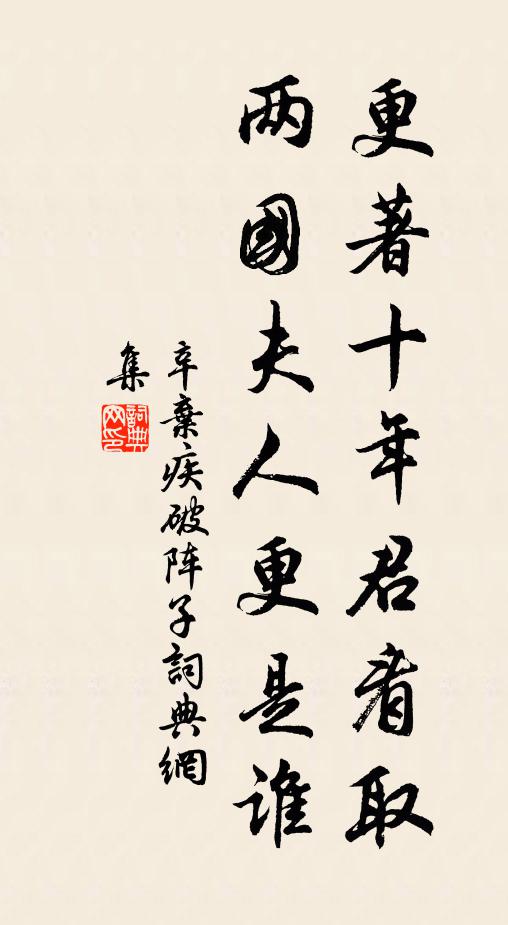 更著十年君看取
两國夫人更是谁
辛棄疾破阵子詞典網
集
詞典网印